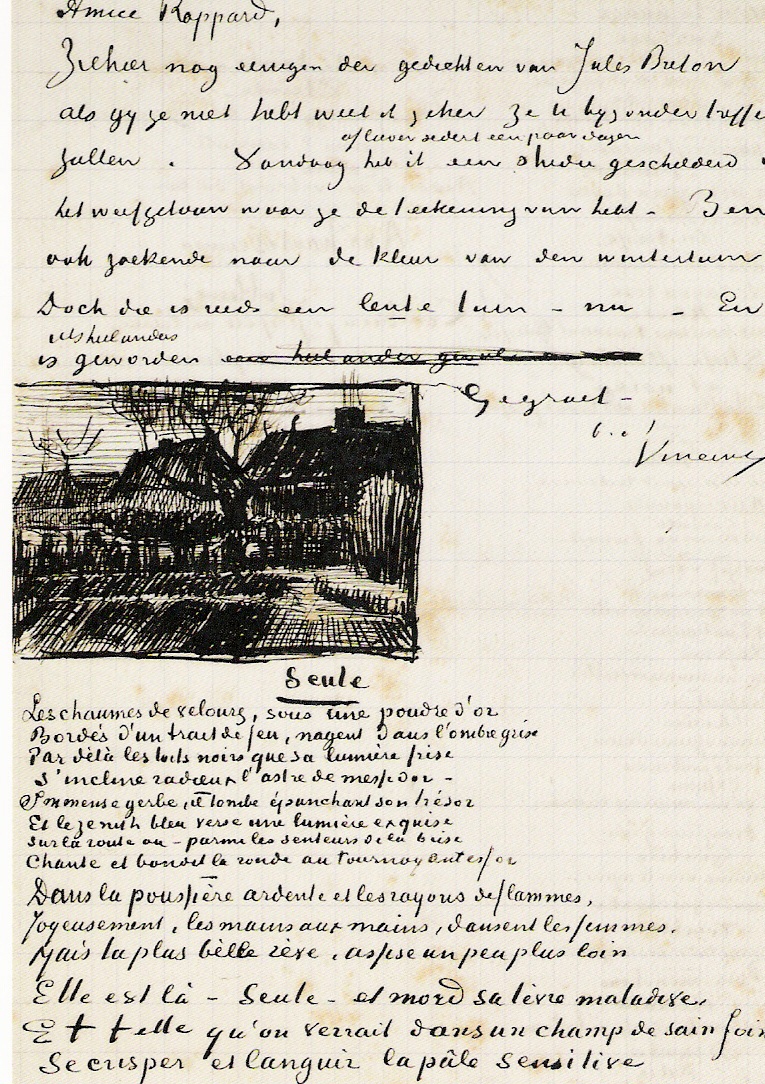 Amice Rappard,
Ziehier nog eenigen der gedichten van Jules Breton
als gy ze niet hebt weet ik zeker ze U byzonder treffe
zullen . Vandaag heb ik een studie geschilderd
of liever sedert een paar dagen
het weefgetouw waar ge de teekening van hebt - Ben
ook zoekende naar de kleur van den wintertuin
Doch die is reeds een lente tuin - nu - En
iets heel anders
is geworden een heel ander
Gegroet -
b. à t
Vincent
Seule
Les chaumes de velours, sous une poudre d'or
Bordés d'un trait de feu, nagent dans l'ombre grise
Par délà les toits noirs que sa lumière frise
S'incline radieux l'astre de messidor -
Immense gerbe, il tombe épanchant son trésor
Et le zenith bleu verse une lumière exquise
Sur la route où - parmi les senteurs de la brise
Chante et bondit la ronde au tournoyant essor
Dans la poussière ardente et les rayons de flammes,
Joyeusement, les mains aux mains, dansent les femmes.
Mais la plus bèlle rève, assise un peu plus loin
Elle est là - Seule - et mord sa lèvre maladive,
Et telle qu'on verrait dans un champ de sain foin
Se crisper et languir la pâle sensitive